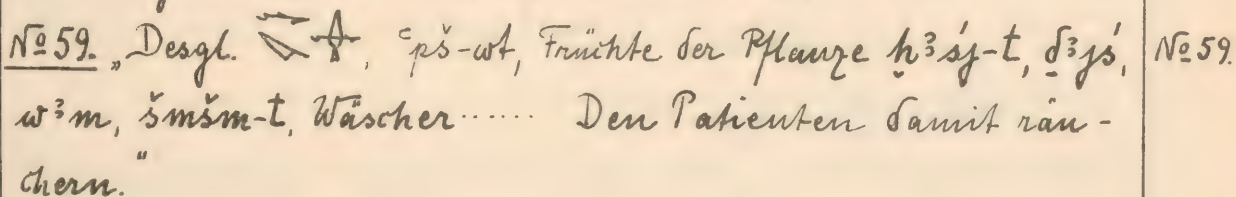 № 59. „Desgl. , ꜥpš-wt, Früchte der Pflanze ẖꜣśj-t, ḏꜣjś, № 59.
wꜣm, šmšm-t, Wäscher ...... Den Patienten damit räu-
chern.“